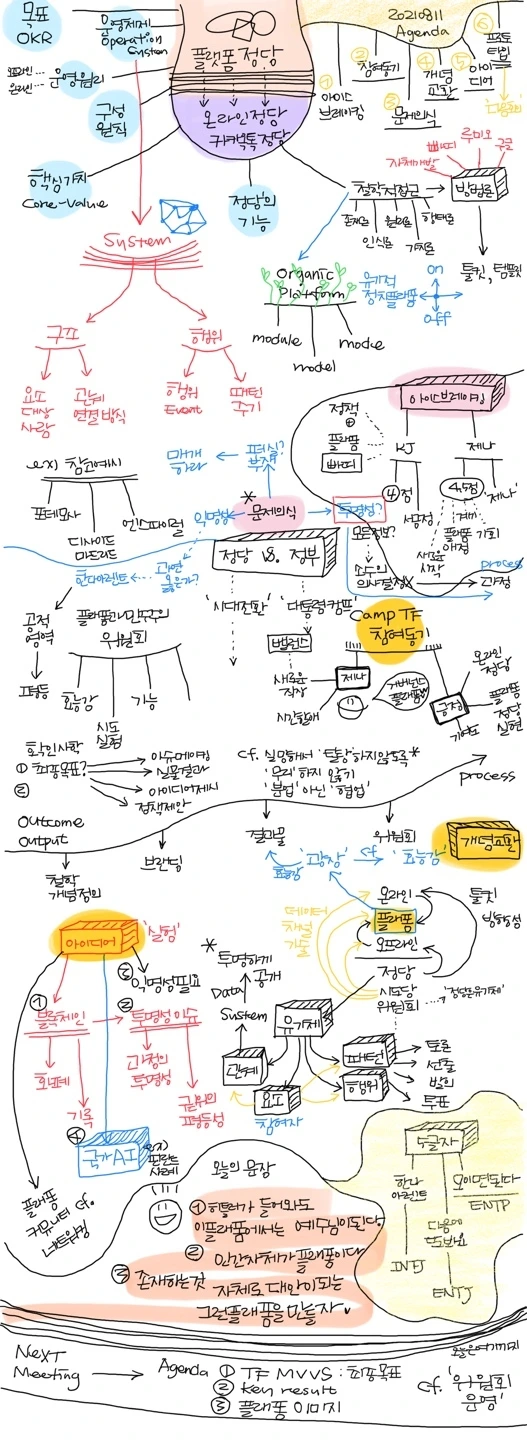 목표
OKR
운영체제
Operation
System
플랫폼정당
온라인정당
운영원리
구성
원칙
핵심가치
Core-Value
정당의
기능
20210811
Agenda
① 아이스
브레이킹
② 참여동기
③ 문제의식
④ 개념
교환
⑤ 아이
디어
⑥
System
구조
행위
요소
대상
사람
관계
연결방식
행위
Event
패턴
주기
철학적접근
존재론
인식론
원리론
가치론
방법론
빠띠
루미오
구글
자체개발
툴킷, 템플릿
Organic
Platform
module
model
mode
유기적
정치플랫폼
on
off
아이스브레이킹
정책
⊕
플랫폼
빠띠
KJ
④점
서공정
제나
4.5점
'제나'
계기
플랫폼
야정
기회
새로운
시작
ex) 참여예시
데모사
디사이드
마드리드
매개
하라
폐쇄?
부재
* 문제의식
익명성
투명성?
모든정보?
소수의
의사결정
과정
process
정당 vs. 정부
과연
옳은가?
한나아렌트
'시대전환'
'대통령캠프'
공적
영역
평등
플랫폼과민주주의
위원회
효능감
시도
실험
기능
Camp TF
참여동기
밸런스
새로운
직장
제나
거버넌스
플랫폼
긍정
온라인
정당
플랫폼
정당
실현
기여도
확인사학
① 최종목표?
②
이슈메이킹
실물결과
아이디어제시
정책제안
cf. 실망해서 '탈당'하지않도록*
'무리'하지 않기
'분업' 아닌 '협업'
process
Outcome
Output
철학
개념정의
브랜딩
결과물
위원회
개념교환
'광장'
cf
'효능감'
효능감
온라인
플랫폼
오프라인
정당
시도당
위원회
'정당은유기체'
툴킷
방향성
데이터
채널
기술
아이디어
'실험'
① 블록체인
화폐
기록
② 투명성이슈
과정의
투명성
권위의
평등성
③ 익명성필요
④ 국가AI
ex)
핀란드
사례
플랫폼
커뮤니티 cf.
네트워킹
* 투명하게
공개
Data
System
유기체
관계
요소
참여자
패턴
행위
토론
선출
발의
투표
5글자
한나
아렌트
INFJ
다음에
또봐요
ENTJ
모이면된다
ENTP
오늘의 문장
① 히틀러가 들어와도
이플랫폼에서는 예수님이된다.
② 인간자체가 플랫폼이다
③ 존재하는것 자체로 대안이되는
그런플랫폼을만들자
오늘은여기까지
Next
Meeting
Agenda ① TF MVVS : 최종목표
② Key result
③ 플랫폼 이미지
cf. '위원회
운영'